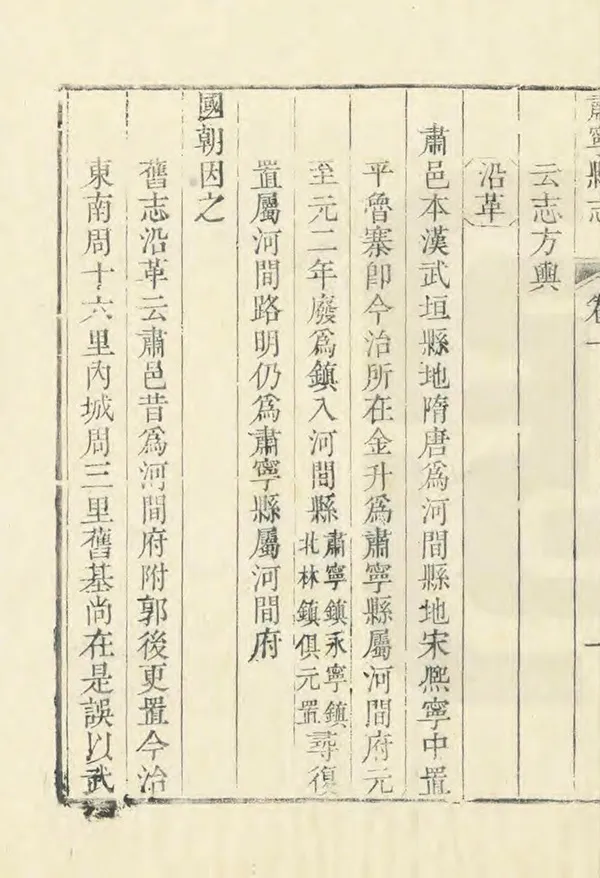 肅寧縣志 卷一 一
云志方輿
沿革
肅邑本漢武垣縣地隋唐爲河間縣地宋熙寧中置
平魯寨卽今治所在金升爲肅寧縣屬河間府元
至元二年廢爲鎮入河間縣肅寧鎮永寧鎮北林鎮俱元置尋復
置屬河間路明仍爲肅寧縣屬河間府
國朝因之
舊志沿革云肅邑昔爲河間府附郭後更置今治
東南周十六里內城周三里舊基尚在是誤以武